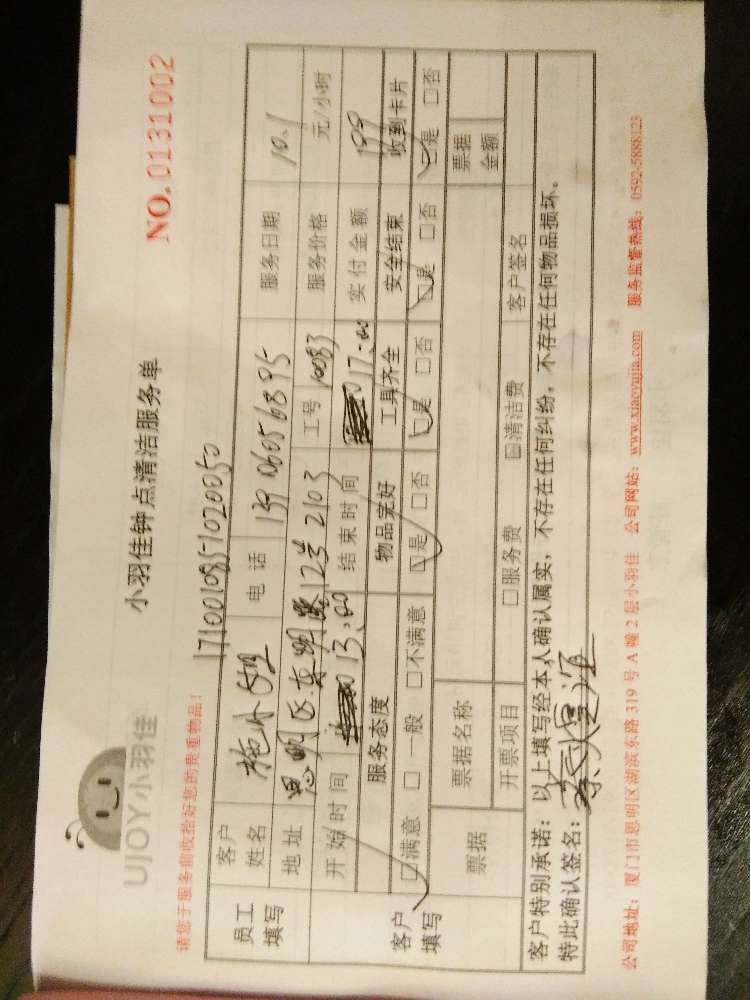 UJOY小羽佳
小羽佳钟点清洁服务单
NO.0131002
请您于服务前收拾好您的贵重物品！
1710010851020050
员工填写
客户姓名 施小姐 电话 13906056895 服务日期 10.1
地址 思明区 12号2103 工号 10083 服务价格 元/小时
开始时间 13:00 结束时间 17:00 实付金额 199
客户填写
服务态度 物品完好 工具齐全 安全结束 收到卡片
☑满意 □一般 □不满意 ☑是 □否 ☑是 □否 ☑是 □否 ☑是 □否
票据 票据名称 票据金额
开票项目 □服务费 □清洁费 客户签名
客户特别承诺：以上填写经本人确认属实，不存在任何纠纷，不存在任何物品损坏。
特此确认签名：
公司地址：厦门市思明区湖滨东路319号A幢2层小羽佳 公司网站：www.xiaoyujia.com 服务监督热线：0592-5888123